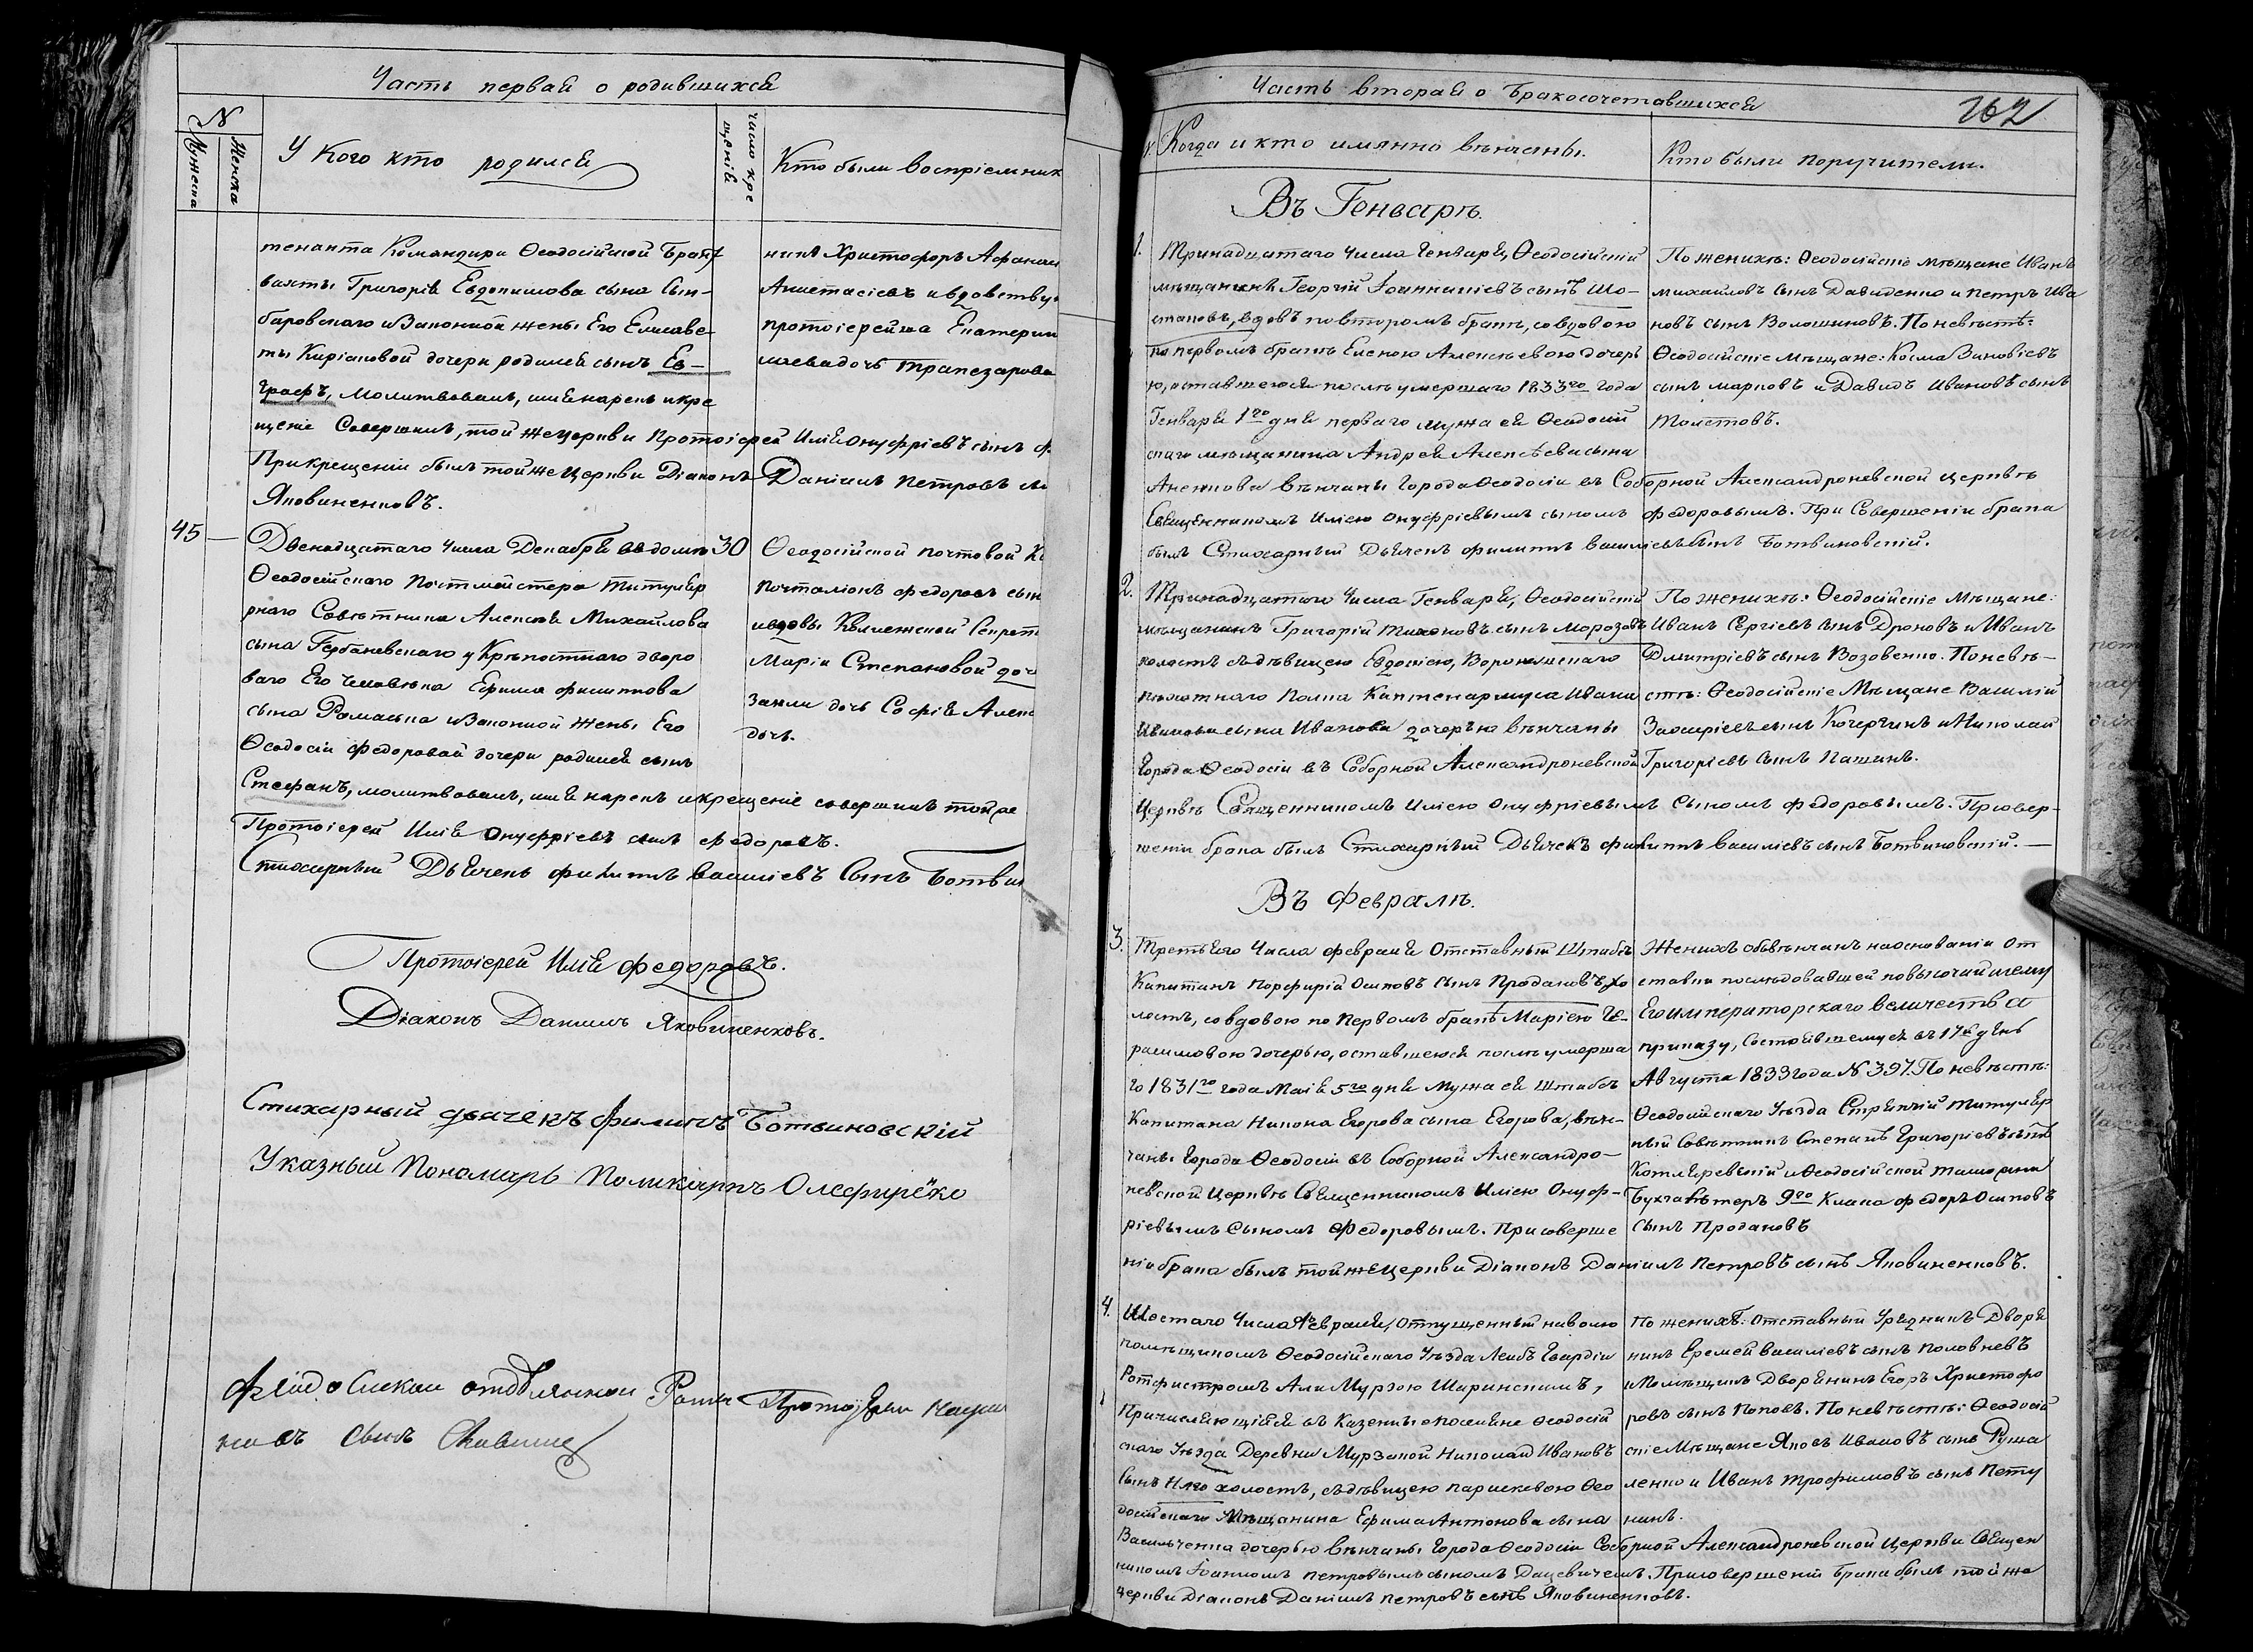 Часть первая о родившихся
N
Мужеска
Женска
У Кого кто родился
число кре
щенія
Кто были воспріемник
тенанта Командира Ѳеодосійской Бранд
вахты Григорія Евдокимова сына Сын-
баровскаго и Законной жены Его Елисаве-
ты Киріаковой дочери родился сынъ Ев-
графъ, молитвовалъ, имя нарекъ и кре
щеніе Совершилъ, той же церкви Протоіерей Илія Онуфріевъ сынъ Ф
При крещеніи былъ той же Церкви Діаконъ Даніилъ Петровъ сы
Яковиненковъ.
никъ Христофоръ Афанаси
Анастасіевъ и вдовству
протоіерейша Екатерин
лаева дочь Трапезарова
45
Двенадцатаго Числа Декабря въ домѣ
Ѳеодосійскаго Постмейстера Титуляр
рнаго Совѣтника Алексѣя Михайлова
сына Гербаневскаго у Крѣпостнаго дворо
ваго Его Человѣка Ефима Филиппова
сына Ромаська и Законной жены Его
Ѳеодосіи Федоровой дочери родился сынъ
Стефанъ, молитвовалъ, имя нарекъ и крещеніе совершилъ той же
Протоіерей Илія Онуфріевъ сынъ Федоровъ.
Стихарный Дьячекъ Филиппъ Василіевъ Сынъ Ботви
30
Ѳеодосійской почтовой Ко
Почталіонъ Федоровъ сын
и вдовы Коллежской Секрет
Маріи Степановой доч
дочь Софія Алек
дочь.
Протоіерей Илія Федоровъ.
Діаконъ Даніилъ Яковиненковъ.
Стихарный дьячекъ Филипъ Ботвиновскій
Указный Пономарь Поликарпъ Олефирѣко
Протоіерей
новъ сынъ
Часть вторая о бракосочетавшихся
162
Когда и кто имянно вѣнчаны.
Кто были поручители.
Въ Генварѣ.
1.
Тринадцатаго Числа Генваря, Ѳеодосійскій
мѣщанинъ Георгій Іоанникіевъ сынъ Шо-
стаковъ, вдовъ по второмъ бракѣ, со вдовою
по первомъ бракѣ Еленою Алексѣевою дочерь
ю, оставшеюся послѣ умершаго 1833го года
Генваря 1го дня перваго мужа ея Ѳеодосій
скаго мѣщанина Андрея Алексѣева сына
Аненкова вѣнчаны Города Ѳеодосіи въ Соборной Александроневской церквѣ
Священникомъ Иліею Онуфріевымъ сыномъ Федоровымъ. При Совершеніи брака
былъ Стихарный Дьячекъ Филиппъ Василіевъ сынъ Ботвиновскій.
По женихѣ: Ѳеодосійскіе мѣщане Иванъ
Михайловъ сынъ Давиденко и Петръ Ива
новъ сынъ Волошиновъ. По невѣстѣ:
Ѳеодосійскіе Мѣщане: Косма Зиновіевъ
сынъ Марковъ и Давидъ Ивановъ сынъ
Толстовъ.
2.
Тринадцатаго Числа Генваря, Ѳеодосійскій
мѣщанинъ Григорій Тихоновъ сынъ Морозовъ
холостъ съ дѣвицею Евдокіею, Воронежскаго
пѣхотнаго Полка Каптенармуса Ивана
Иванова сына Иванова дочерью вѣнчаны
Города Ѳеодосіи въ Соборной Александроневской
Церквѣ Священникомъ Иліею Онуфріевымъ Сыномъ Федоровымъ. При Совер-
шеніи брака былъ Стихарный Дьячекъ Филиппъ Василіевъ сынъ Ботвиновскій.
По женихѣ: Ѳеодосійскіе Мѣщане:
Иванъ Сергіевъ Сынъ Дроновъ и Иванъ
Дмитріевъ сынъ Возовенко. По невѣ-
стѣ: Ѳеодосійскіе Мѣщане Василій
Захаріевъ сынъ Кочергинъ и Николай
Григоріевъ Сынъ Пашинъ.
Въ Февралѣ.
3.
Третьяго Числа Февраля Отставный Штабсъ
Капитанъ Порфирій Осиповъ Сынъ Продановъ, хо
лостъ, со вдовою по Первомъ бракѣ Маріею Ге-
расимовою дочерью, оставшеюся послѣ умерша
го 1831го года Маія 5го дня Мужа ея Штабсъ
Капитана Никона Егорова сына Егорова, вѣн-
чаны Города Ѳеодосіи въ Соборной Александро-
невской Церквѣ Священникомъ Иліею Онуф-
ріевымъ Сыномъ Федоровымъ. При соверше
ніи брака былъ той же Церкви Діаконъ Даніилъ Петровъ сынъ Яковиненковъ.
Женихъ обвѣнчанъ на основаніи от
ставки последовавшей по высочайшему
Его императорскаго величества
приказу, Состоявшемуся въ 17й день
Августа 1833 года N 397. По невѣстѣ:
Ѳеодосійскаго Уѣзда Стряпчій Титуляр
ный Совѣтникъ Степанъ Григоріевъ сынъ
Котляревскій и Ѳеодосійской таможни
Бухгалтеръ 9го Класа Федоръ Осиповъ
Сынъ Продановъ
4.
Шостаго Числа Февраля, Отпущенный на волю
помѣщикомъ Ѳеодосійскаго Уѣзда Лейбъ Гвардіи
Ротмистромъ Али Мурзою Ширинскимъ,
Причисляющійся въ Казенные поселяне Ѳеодосій
скаго Уѣзда Деревни Мурзакой Николай Ивановъ
Сынъ холостъ, съ дѣвицею Параскевою Ѳео
досійскаго Мѣщанина Ефима Антонова сына
Васильченка дочерью вѣнчаны Города Ѳеодосіи Соборной Александроневской Церкви Священ
никомъ Іоанномъ Петровымъ сыномъ Дацевичемъ. При совершеніи Брака былъ той же
церкви Діаконъ Даніилъ Петровъ сынъ Яковиненковъ.
По женихѣ: отставный Урядникъ Дворя
нинъ Еремей Василіевъ сынъ Половневъ
и Помѣщикъ Дворянинъ Егоръ Христофо
ровъ сынъ Поповъ. По невѣстѣ: Ѳеодосій
скіе Мѣщане Яковъ Ивановъ сынъ Ружа
ленко и Иванъ Трофимовъ сынъ Пету
нинъ.